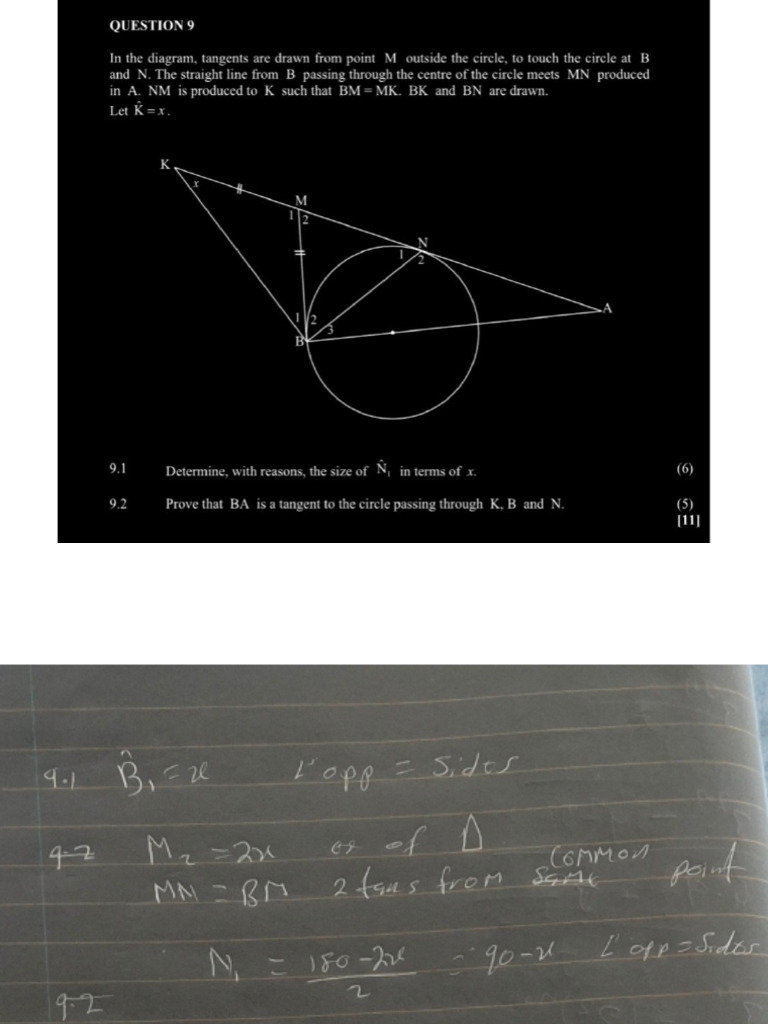 QUESTION 9
In the diagram, tangents are drawn from point M outside the circle, to touch the circle at B
and N. The straight line from B passing through the centre of the circle meets MN produced
in A. NM is produced to K such that BM = MK. BK and BN are drawn.
Let K̂ = x.
K
x
M
1 2
N
1
2
A
1 2
3
B
9.1 Determine, with reasons, the size of N̂₁ in terms of x. (6)
9.2 Prove that BA is a tangent to the circle passing through K, B and N. (5)
[11]
9.1 B̂₁ = x L's opp = sides
9.2 M₂ = 2x ex of Δ
MN = BM 2 tans from same common point
N₁ = 180-2x/2 = 90-x L's opp = Sides
9.2